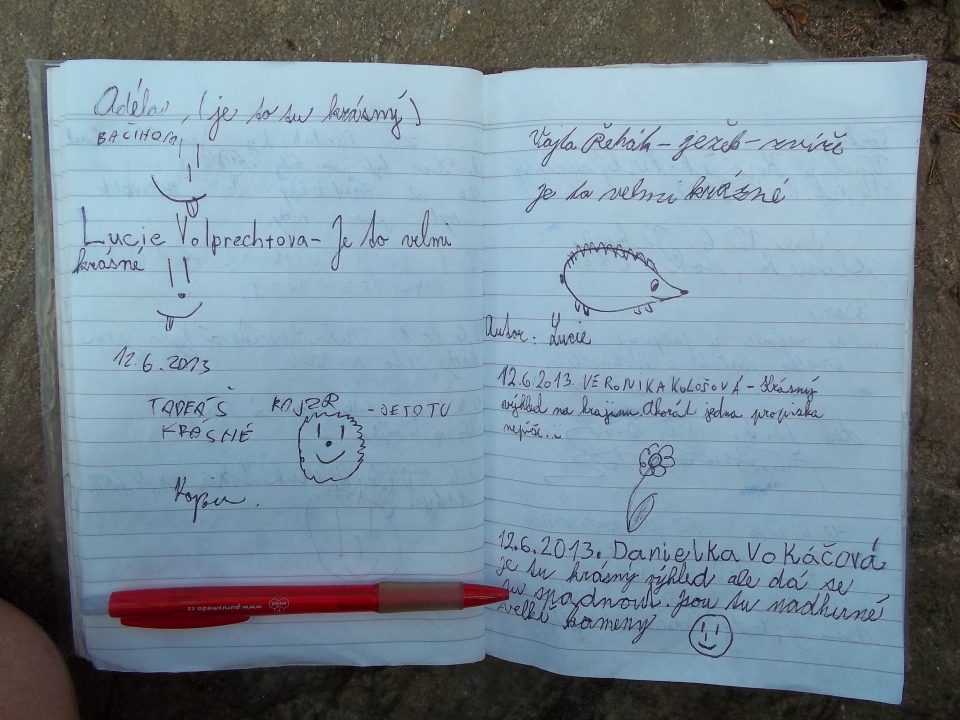 Adéla, (je to tu krásný)
BAČIHOM
Lucie Volprechtova - Je to velmi
krásné
12.6.2013
TADEÁŠ
KRÁSNÉ
- JE TO TU
Vojta Řehák - ježek - zvíře
je to velmi krásné
Autor: Lucie
12.6.2013. VERONIKA KOLOŠOVÁ - Krásný
výhled na krajinu. Akorát jedna propiska
nepíše...
12.6.2013. Danielka Vokáčová
je tu krásný výhled ale dá se
tu spadnout. jsou tu nadherné
velké kameny
www.purusmeda.cz